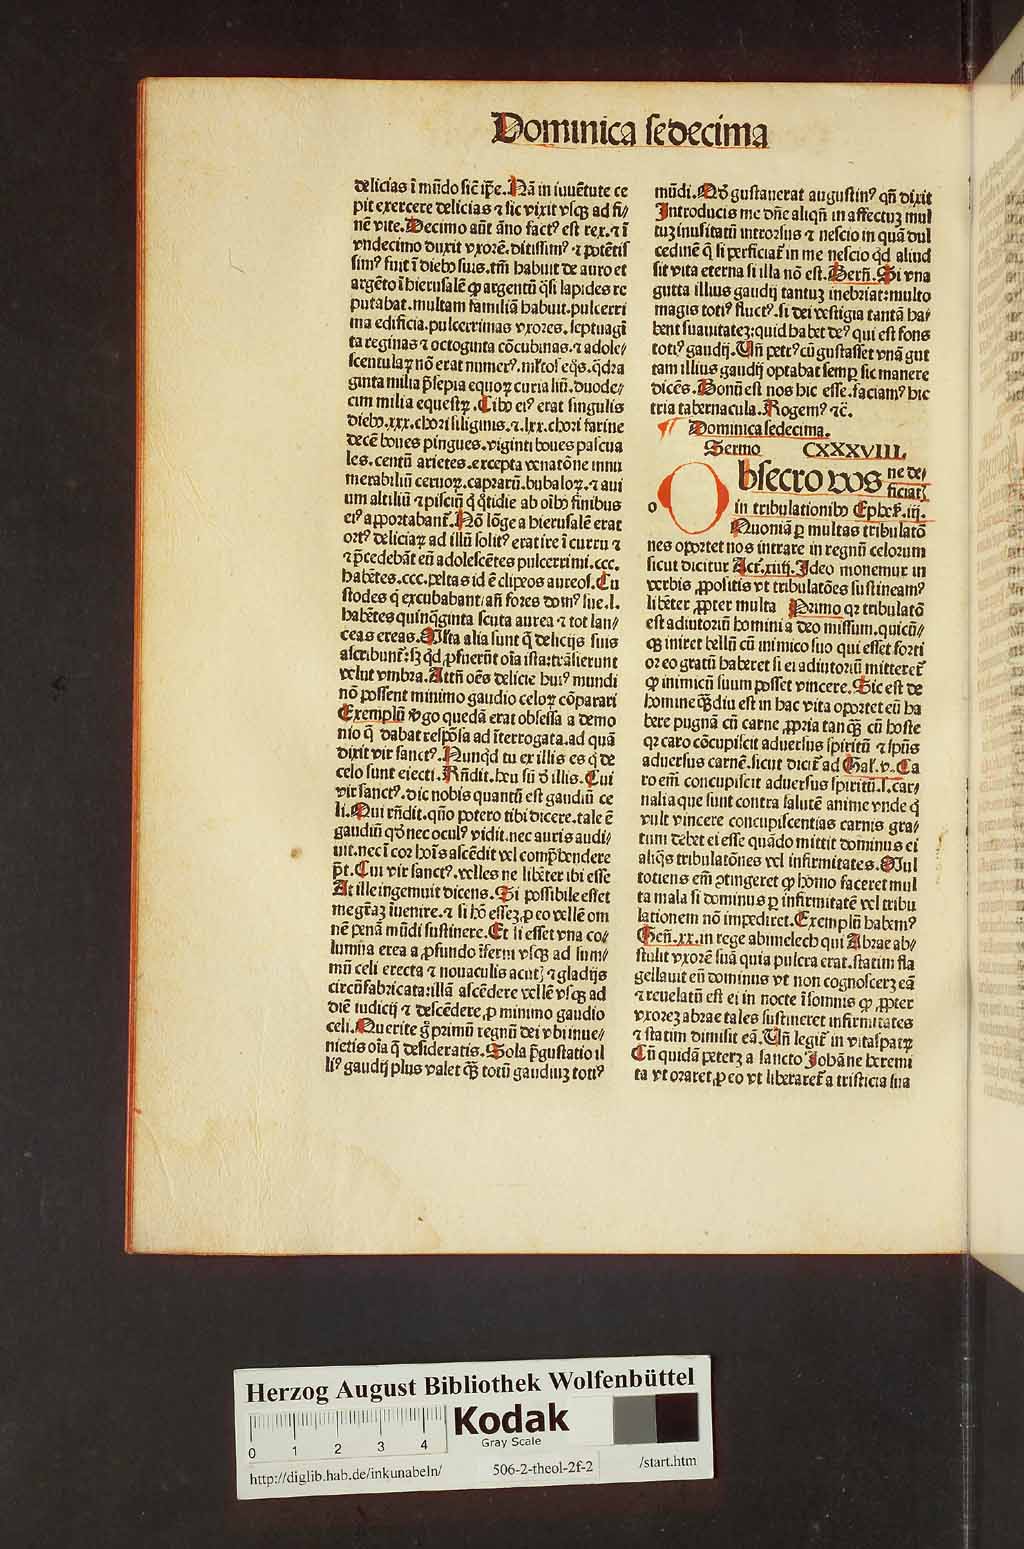 Dominica sedecima
delicias ī mūdo sic̄ ip̄e. Nā in iuuētute ce
pit exercere delicias ⁊ sic vixit vsqꝫ ad fi⸗
nē vite. Decimo aūt āno factꝰ est rex. ⁊ ī
vndecimo duxit vxorē. ditissimꝰ ⁊ potētis
simꝰ fuit ī diebꝰ suis. tm̄ habuit de auro et
argēto ī hierusalē ꝙ argentū q̄si lapides re
putabat. multam familiā habuit. pulcerri
ma edificia. pulcerrimas vxores. septuagī
ta reginas ⁊ octoginta cōcubinas. ⁊ adole⸗
scentulaꝝ nō erat numerꝰ.
ginta milia p̄sepia equoꝝ curialiū. duode⸗
cim milia equestꝝ. Cibꝰ eiꝰ erat singulis
diebꝰ. xxx. chori siliginis. ⁊ .lxx. chori farine
decē boues pingues. viginti boues pascua
les. centū arietes. excepta venatōne innu
merabiliū ceruoꝝ. caprarū. bubaloꝝ. ⁊ aui
um altiliū ⁊ pisciū q̄ q̄tidie ab oībꝰ finibus
eiꝰ apportabant᷑. Nō lōge a hierusalē erat
ortꝰ deliciaꝝ ad illū solitꝰ erat ire ī curru ⁊
⁊ p̄cedebāt eū adolescētes pulcerrimi. ccc.
habētes. ccc. peltas id ē clipeos aureos. Cu
stodes q̄ excubabant an̄ fores domꝰ sue .l.
habētes quinq̄ginta scuta aurea ⁊ tot lan⸗
ceas ereas. Mlta alia sunt q̄ delicijs suis
ascribunt᷑: sꝫ qͥd ꝓfuerūt oīa ista: trāsierunt
velut vmbra. Attn̄ oēs delicie huiꝰ mundi
nō possent minimo gaudio celoꝝ cōparari
Exemplū ꝟgo quedā erat obsessa a demo
nio q̄ dabat respōsa ad īterrogata. ad quā
dixit vir sanctꝰ. Nunqͥd tu ex illis es q̄ de
celo sunt eiecti. Rn̄dit. heu sū ꝺ illis. Cui
vir sanctꝰ. dic nobis quantū est gaudiū ce
li. Qui rn̄dit. qn̄o potero tibi dicere. tale ē
gaudiū qꝺ nec oculꝰ vidit. nec auris audi⸗
uit. nec ī cor hoīs ascēdit vel comp̄hendere
p̄t. Cui vir sanctꝰ. velles ne libēter ibi esse
At ille ingemuit dicens. Si possibile esset
me gr̄aꝫ īuenire. ⁊ si hō esseꝫ. ꝓ eo vellē om
nē penā mūdi sustinere. Et si esset vna co⸗
lumna erea a ꝓfundo īferni vsqꝫ ad sum⸗
mū celi erecta ⁊ nouaculis acutꝭ ⁊ gladijs
circūfabricata: illā ascēdere vellē vsqꝫ ad
diē iudicij ⁊ descēdere. ꝓ minimo gaudio
celi. Querite gͦ primū regnū dei vbi inue⸗
nietis oīa q̄ desideratis. Sola p̄gustatio il
liꝰ gaudij plus valet qꝫ̄ totū gaudiuꝫ totiꝰ
mūdi. Nō gustauerat augustinꝰ qn̄ dixit
Introducis me dn̄e aliqn̄ in affectuꝫ mul
tuꝫ inusitatū introrsus ⁊ nescio in quā dul
cedinē q̄ si perficiat᷑ in me nescio qͥd aliud
sit vita eterna si illa nō est. Bern̄. Si vna
gutta illius gaudij tantuꝫ inebriat: multo
magis totiꝰ fluctꝰ. si dei vestigia tantā ha⸗
bent suauitateꝫ: quid habet deꝰ qui est fons
totiꝰ gaudij. Un̄ petrꝰ cū gustasset vnā gut
tam illius gaudij optabat semꝑ sic manere
dicēs. Bonū est nos hic esse. faciamꝰ hic
tria tabernacula. Rogemꝰ ⁊c̄.
¶ Dominica sedecima.
Sermo CXXXVIII.
Obsecro vos ne de⸗
ficiatꝭ
o
in tribulationibꝰ Ephe᷑. iij.
Quoniā ꝑ multas tribulatō
nes oportet nos intrare in regnū celorum
sicut dicitur Act᷑. xiiij. Ideo monemur in
verbis ꝓpositis vt tribulatōes sustineamꝰ
libēter ꝓpter multa Primo qꝛ tribulatō
est adiutoriū homini a deo missum. quicū⸗
qꝫ iniret bellū cū inimico suo qui esset forti
or eo gratū haberet si ei adiutoriū mitteret᷑
ꝙ inimicū suum posset vincere. Sic est de
homine qꝫ̄diu est in hac vita oportet eū ha
bere pugnā cū carne ꝓpria tanqꝫ̄ cū hoste
qꝛ caro cōcupiscit aduersus spiritū ⁊ spūs
aduersus carnē. sicut dicit᷑ ad Gal᷑. v. Ca
ro em̄ concupiscit aduersus spiritū. .s. car⸗
nalia que sunt contra salutē anime vnde q̄
vult vincere concupiscentias carnis gra⸗
tum debet ei esse quādo mittit dominus ei
aliqͥs tribulatōnes vel infirmitates. Mul
totiens em̄ ꝯtingeret ꝙ homo faceret mul
ta mala si dominus ꝑ infirmitatē vel tribu
lationem nō impediret. Exemplū habemꝰ
Gen̄. xx. in rege abimelech qui Abrae ab⸗
stulit vxorē suā quia pulcra erat. statim fla
gellauit eū dominus vt non cognosceꝛꝫ eā
⁊ reuelatū est ei in nocte ī somnis ꝙ ꝓpter
vxoreꝫ abrae tales sustineret infirmitates
⁊ statim dimisit eā. Un̄ legit᷑ in vitaspatꝝ
Cū quidā peterꝫ a sancto Johāne heremi
ta vt oraret ꝓ eo vt liberaret᷑ a tristicia sua
Herzog August Bibliothek Wolfenbüttel
Kodak
Gray Scale
0 1 2 3 4
http://diglib.hab.de/inkunabeln/ 506-2-theol-2f-2 /start.htm